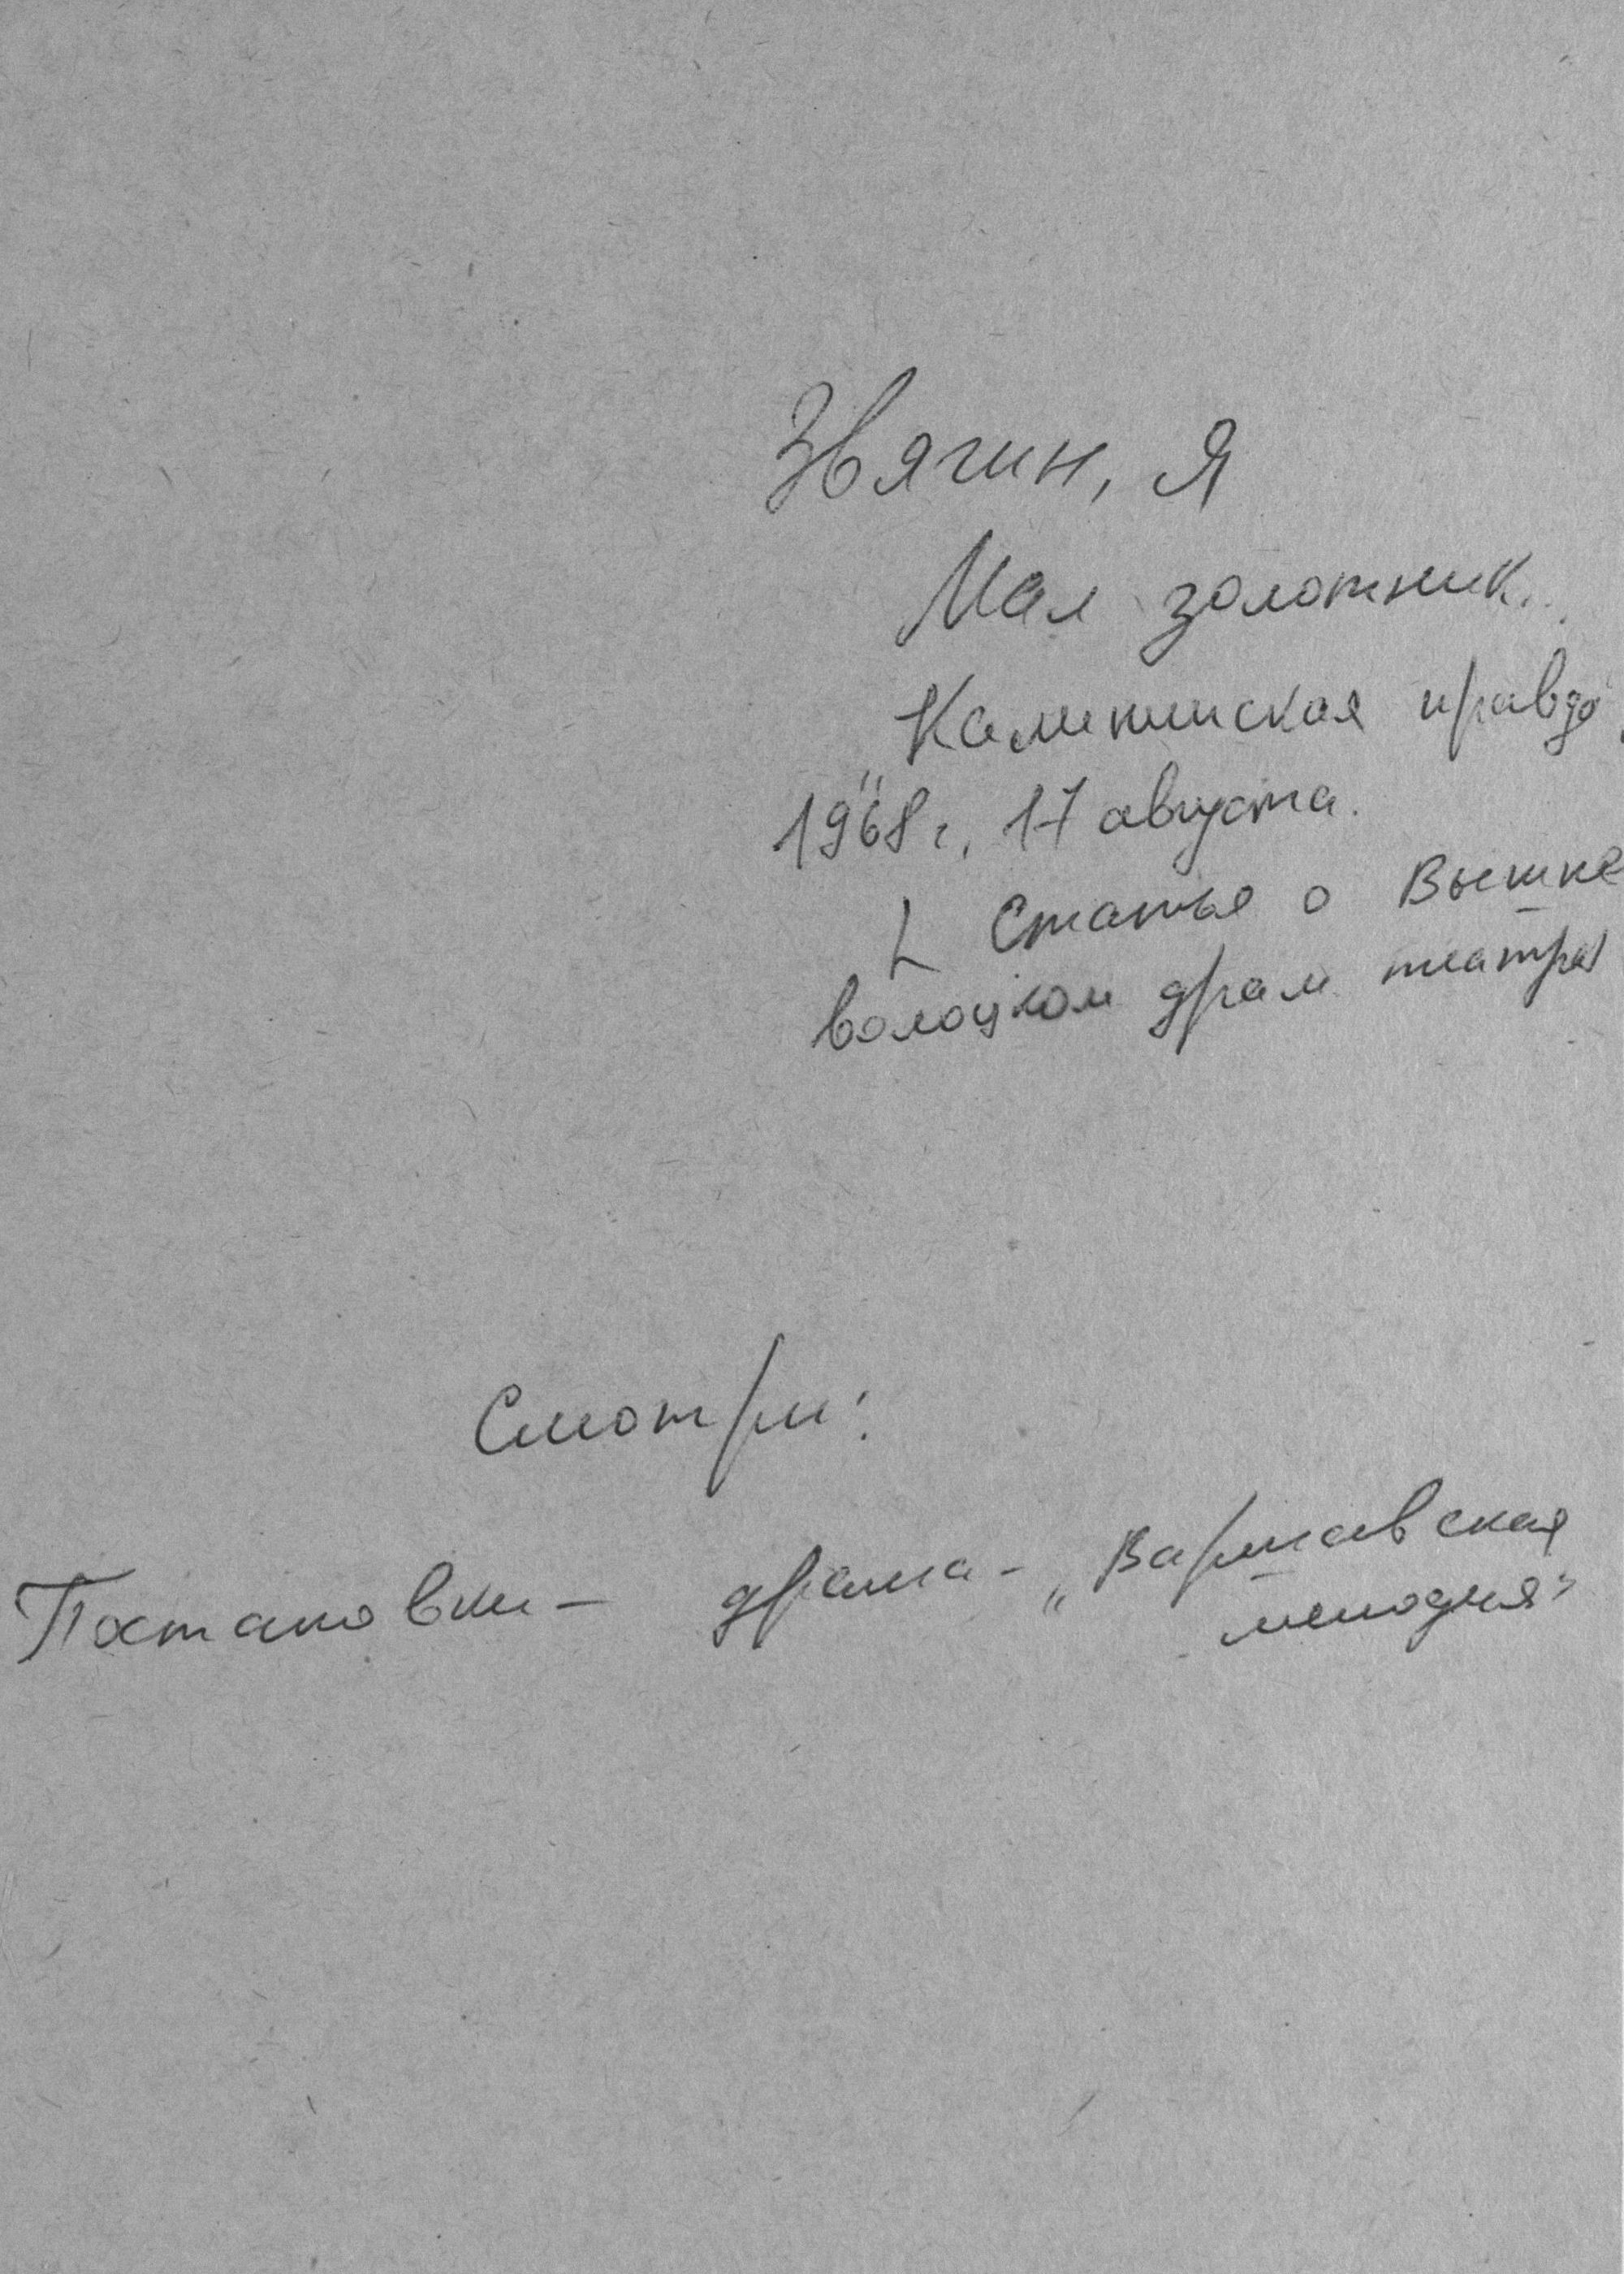 Звягин, Я
Мал золотник..
„Калининская правда
1968 г., 17 августа.
Статья о Вышне
волоцком драм. театре
Смотри:
Постановки – драма – „Варшавская
мелодия"